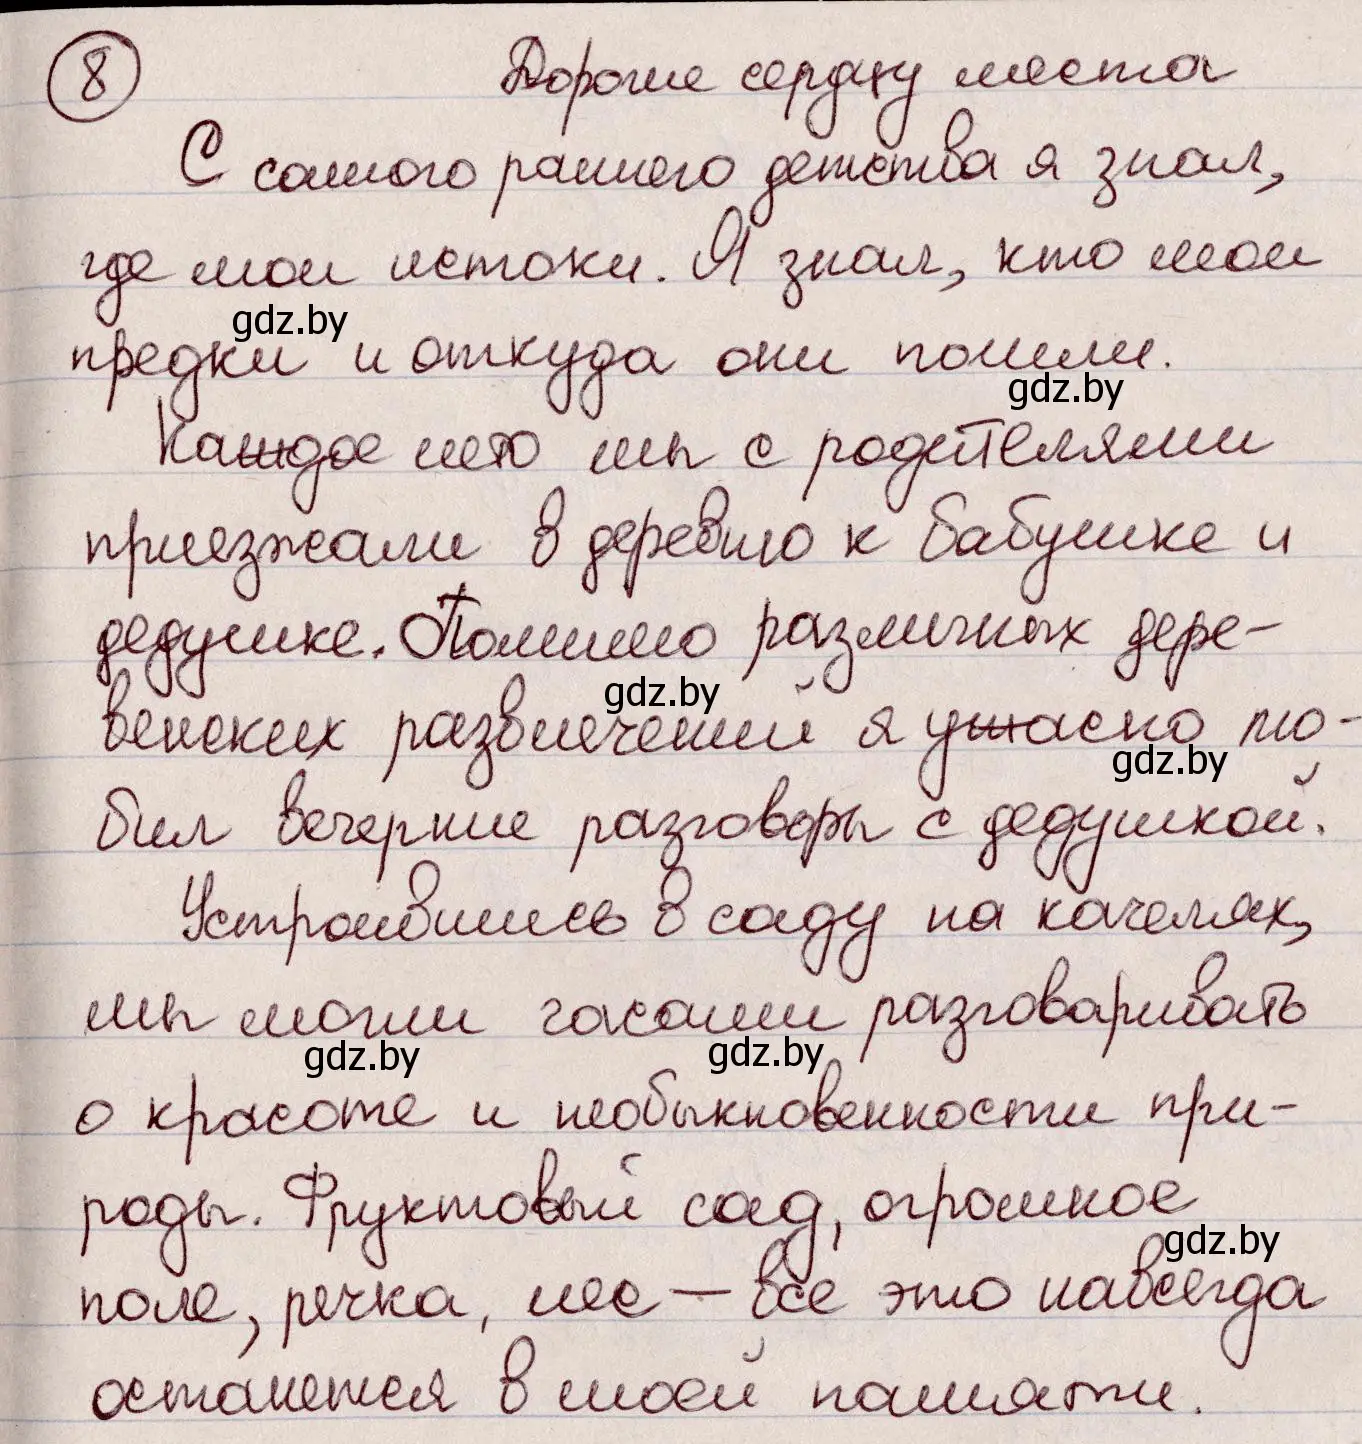 8 Дорогие сердцу места
С самого раннего детства я знал,
где мои истоки. Я знал, кто мои
gdz.by
предки и откуда они пошли.
gdz.by
Каждое лето мы с родителями
приезжали в деревню к бабушке и
дедушке. Помимо различных дере-
gdz.by
венских развлечений я ужасно лю-
gdz.by
бил вечерние разговоры с дедушкой.
Устроившись в саду на качелях,
мы могли часами разговаривать
gdz.by gdz.by
о красоте и необыкновенности при-
роды. Фруктовый сад, огромное
gdz.by
поле, речка, лес — все это навсегда
останется в моей памяти.